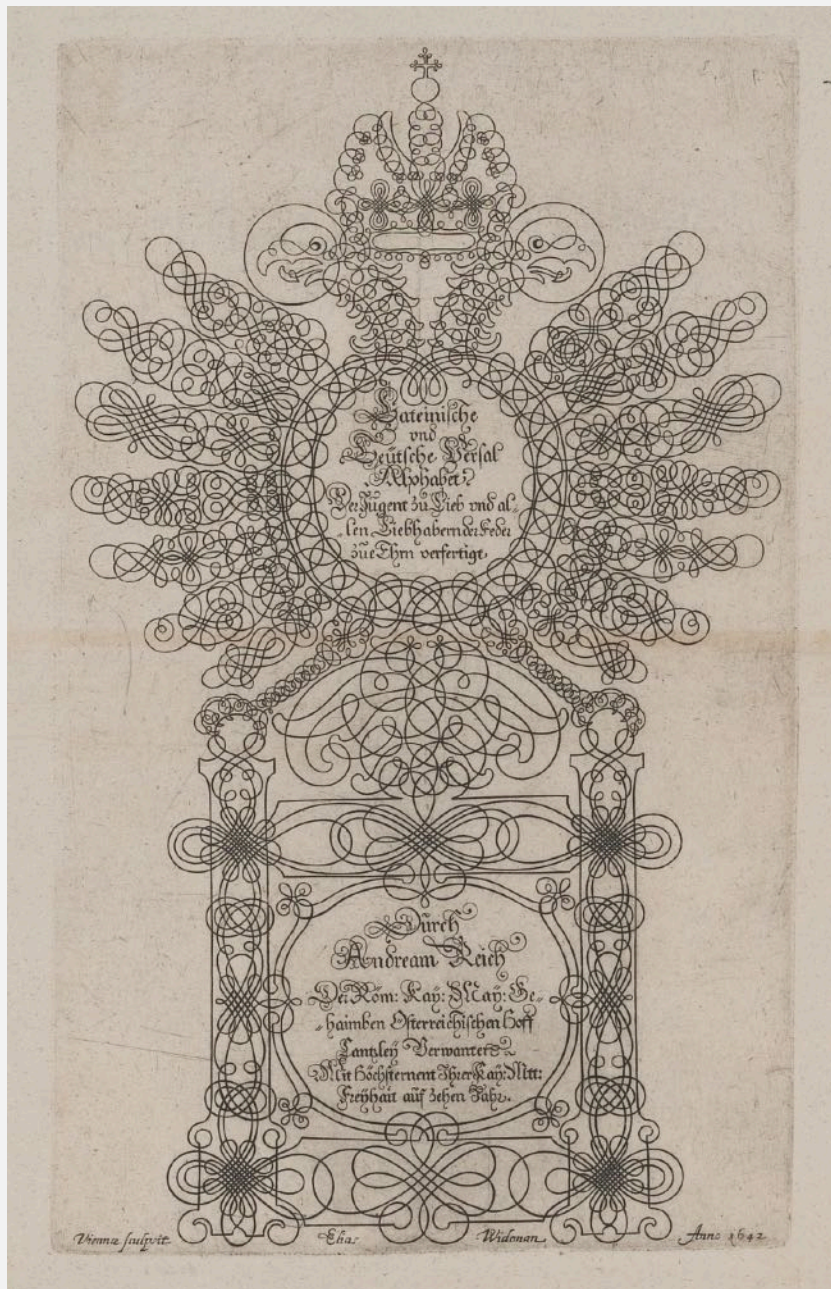 Lateinische
vnd
Deütsche Versal
Alphabet.
Der Jugent zu Lieb vnd al=
=len Liebhabern der Feder
zue Ehrn verfertigt.
Dürch
Andream Reich
Der Röm: Kaÿ: Maÿ: Ge=
=haimben Österreichischen Hoff
Cantzleÿ Verwanter
Mit höchsternent Ihrer Kaÿ: Mtt:
Freÿhait auf zehen Jahr.
Viennæ sculpsit Elias Wideman. Anno 1642